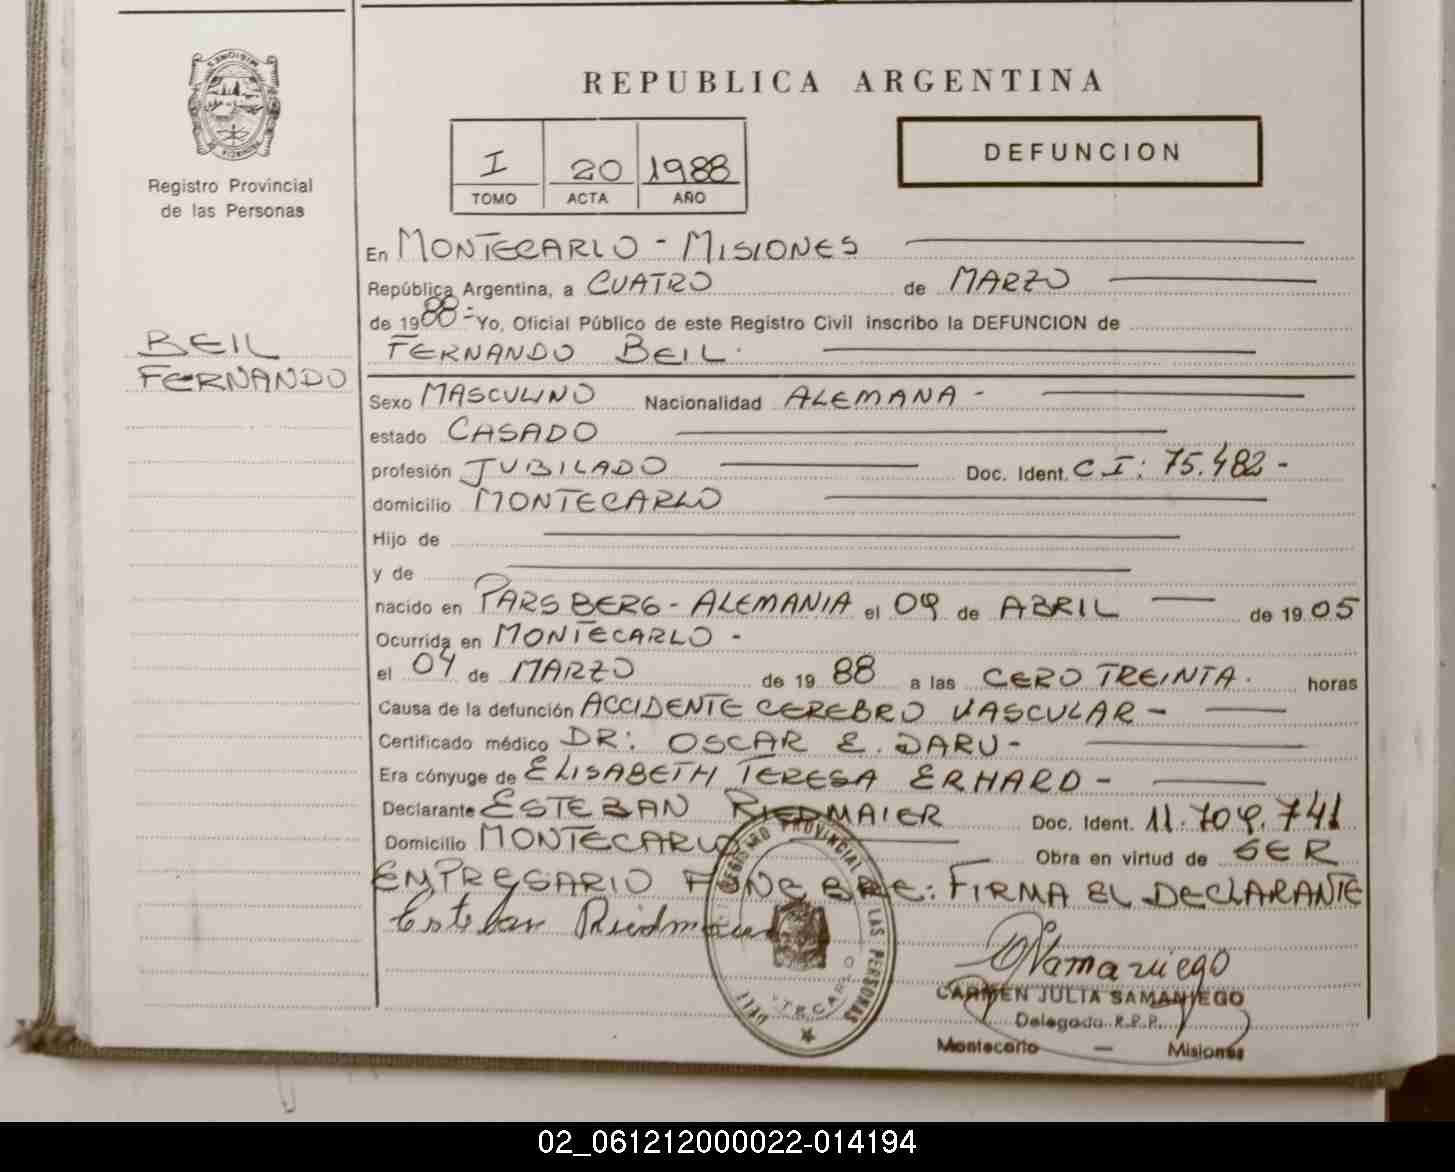 REPUBLICA ARGENTINA
MISIONES
PROVINCIA
Registro Provincial
de las Personas
I 20 1988
TOMO ACTA AÑO
DEFUNCION
En MONTECARLO - MISIONES
República Argentina, a CUATRO de MARZO
de 1988 - Yo, Oficial Público de este Registro Civil inscribo la DEFUNCION de
FERNANDO BEIL.
BEIL
FERNANDO
Sexo MASCULINO Nacionalidad ALEMANA -
estado CASADO
profesión JUBILADO Doc. Ident. C I: 75.482 -
domicilio MONTECARLO
Hijo de
y de
nacido en PARSBERG - ALEMANIA el 09 de ABRIL de 1905
Ocurrida en MONTECARLO -
el 04 de MARZO de 1988 a las CERO TREINTA. horas
Causa de la defunción ACCIDENTE CEREBRO VASCULAR -
Certificado médico DR: OSCAR E. DARU -
Era cónyuge de ELISABETH TERESA ERHARD -
Declarante ESTEBAN RIEDMAIER Doc. Ident. 11.709.741
Domicilio MONTECARLO Obra en virtud de SER
EMPRESARIO FUNEBRE: FIRMA EL DECLARANTE
Esteban Riedmaier
REGISTRO PROVINCIAL DE LAS PERSONAS
Samaniego
CARMEN JULIA SAMANIEGO
Delegada R.P.P.
Montecarlo — Misiones
02_061212000022-014194